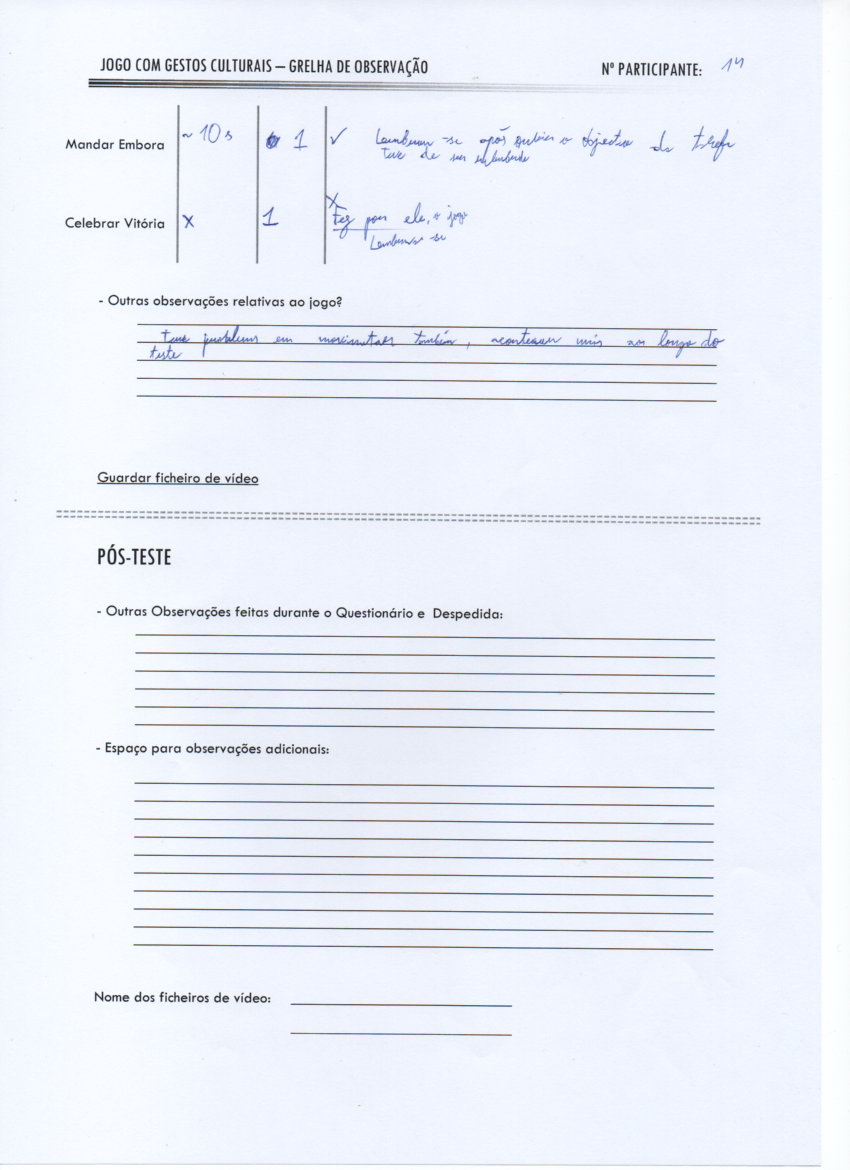 JOGO COM GESTOS CULTURAIS – GRELHA DE OBSERVAÇÃO
Nº PARTICIPANTE: 14
Mandar Embora ~ 10s 1 ✓ após o objectivo da
teve de ser
Celebrar Vitória X 1 X Fez por ele, o jogo
Lembrava-se
- Outras observações relativas ao jogo?
Teve problemas em também, mais ao longo do
teste
Guardar ficheiro de vídeo
PÓS-TESTE
- Outras Observações feitas durante o Questionário e Despedida:
- Espaço para observações adicionais:
Nome dos ficheiros de vídeo: